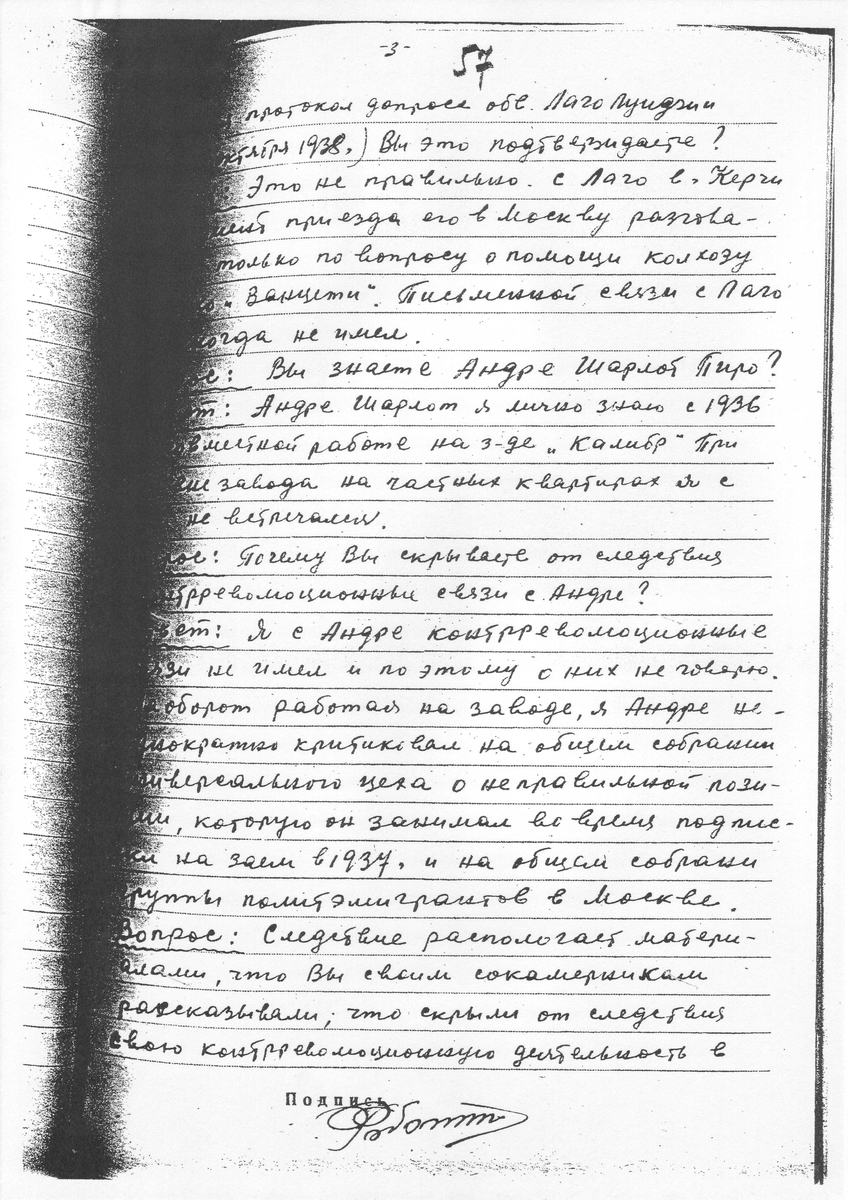 -3-
57
протокол допроса обв. Лаго Луиджи
октября 1938.) Вы это подтверждаете?
Это не правильно. С Лаго в г. Керчи
приезда его в Москву разгова-
только по вопросу о помощи колхозу
"Ванцети". Письменной связи с Лаго
не имел.
Вы знаете Андре Шарлот Пиро?
Андре Шарлот я лично знаю с 1936
работе на з-де "Калибр" При
завода на частных квартирах я с
не встречался.
Почему Вы скрываете от следствия
контрреволюционные связи с Андре?
Ответ: Я с Андре контрреволюционные
связи не имел и по этому о них не говорю.
Наоборот работая на заводе, я Андре не-
однократно критиковал на общем собрании
универсального цеха о неправильной пози-
ции, которую он занимал во время подпис-
ки на заем в 1937г. и на общем собрани
группы политэмигрантов в Москве.
Вопрос: Следствие распологает матери-
алами, что Вы своим сокамерникам
рассказывали, что скрыли от следствия
свою контрреволюционную деятельность в
Подпись